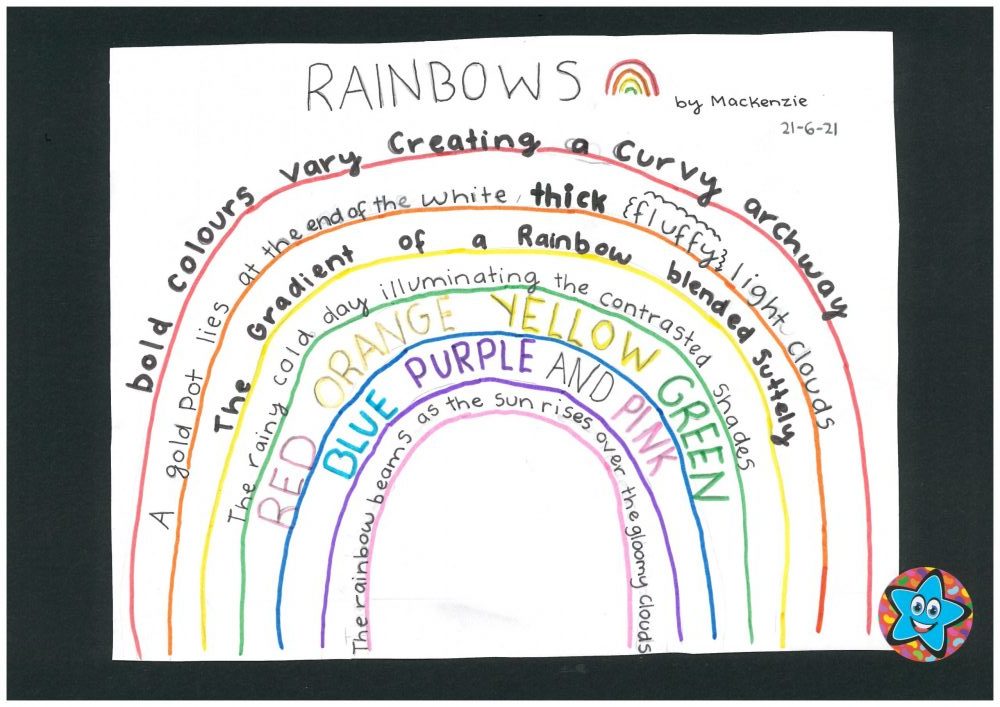 RAINBOWS
by Mackenzie
21-6-21
bold colours vary Creating a Curvy archway
A gold pot lies at the end of the white, thick {fluffy} light clouds
The Gradient of a Rainbow blended Suttely
The rainy cold day illuminating the contrasted shades
RED ORANGE YELLOW GREEN
BLUE PURPLE AND PINK
The rainbow beams as the sun rises over the gloomy clouds